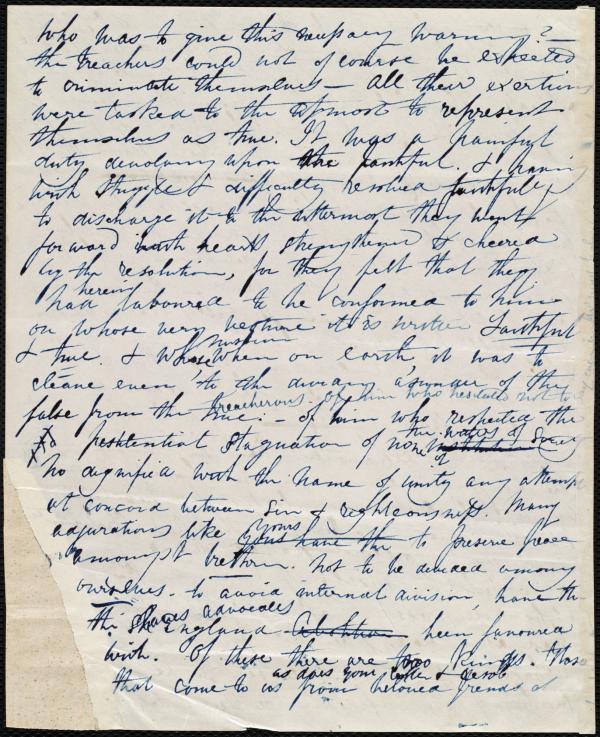 Who was to give this necessary warning?
the treachers could not of course be expected
to criminate themselves — All their exertions
were tasked to the utmost to represent
themselves as true. It was a painful
duty devolving upon the faithful. &
with struggle & difficulty resolved faithfully
to discharge it to the uttermost they went
forward with hearts strengthened & cheered
by the resolution, for they felt that they
had herein laboured to be conformed to him
on whose very vesture it is written Faithful
& true. & whose mission when on earth it was to
cleave even to the dividing asunder of the
false from the true: — of him who
treacherous of him who hesitated not to respected the
pestilential stagnation of the waters of
no dignified with the name of unity any attempt
at concord between Sin & righteousness. Many
adjurations like yours have the to preserve peace
amongst brethren. Not to be divided among
ourselves. to avoid internal division, have the
the slaves advocates
England Abolition been favoured
with. Of these there are two kinds. Those
as does your letter &
that come to us from beloved friends